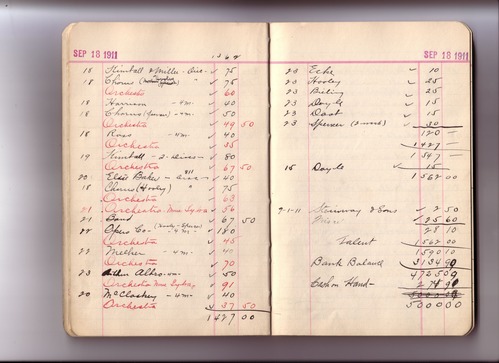 SEP 18 1911
18 Kimball & Miller - Disc - ✓ 75
18 Chorus ✓ 75
Orchestra ✓ 60
18 Harrison - 4m - ✓ 40
18 Chorus - 4m ✓ 50
Orchestra ✓ 49 50
18 Ross - 4m - ✓ 40
Orchestra ✓ 35
19 Kimball - 2 Discs - ✓ 80
Orchestra ✓ 67 50
20 Elsie Baker - Disc - ✓ 40
18 Chorus (Hooley) " 75
Orchestra ✓ 63
21 Orchestra
21 Band ✓ 67 50
22 Opera Co - 4m - ✓ 180
Orchestra ✓ 45
22 - 4m - ✓ 40
Orchestra ✓ 70
23 ✓ 50
Orchestra ✓ 91
20 McCloskey - 4m - ✓ 40
Orchestra ✓ 37 50
1427 00
SEP 18 1911
23 Ecke ✓ 10
23 Hooley ✓ 25
23 Bieling ✓ 25
23 Doyle ✓ 15
23 ✓ 15
23 Spencer (2 week) ✓ 30
120
1427
1547
15 Doyle ✓ 15
1562 00
9-1-11 Steinway & Sons ✓ 2 50
✓ 25 60
28 10
Talent 1562 00
1590 10
Bank Balance 3134 90
4725 00
Cash on Hand - 274 90
5000 00